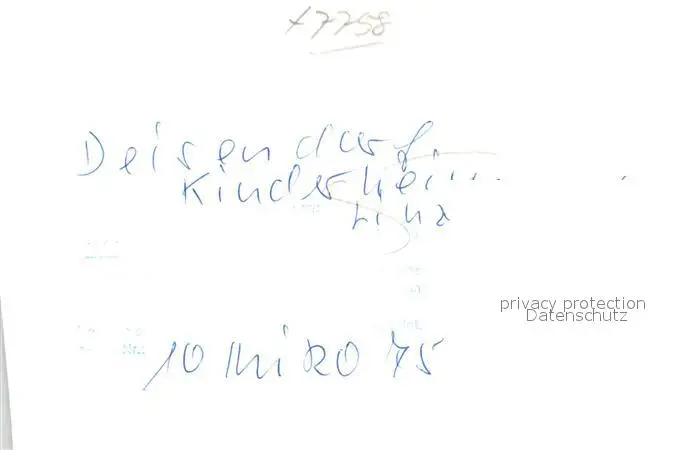 +7758
Deisendorf
Kinderhei...
Linz
privacy protection
Datenschutz
10 Miko 75